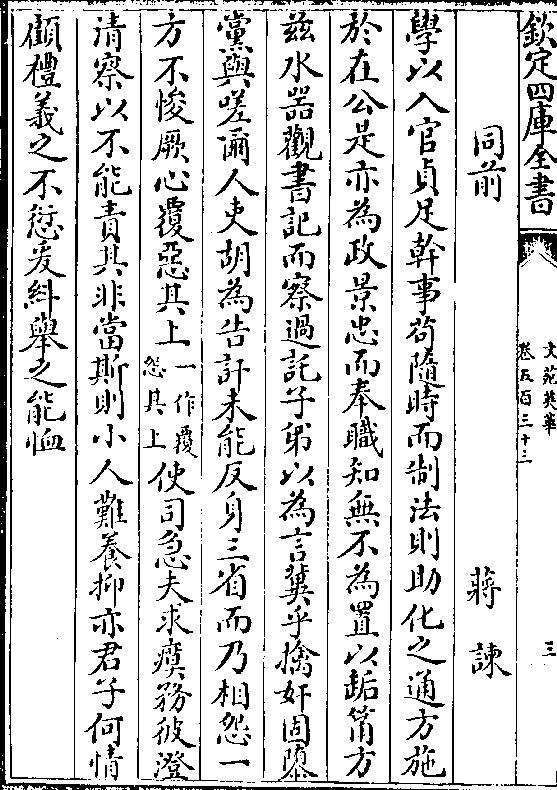 欽定四庫全書
文苑英華
卷五百三十三
三
同前
蔣諫
學以入官貞足幹事茍隨時而制法則助化之通方施
於在公是亦為政景忠而奉職知無不為置以缿筩方
兹水器觀書記而察過託子弟以為言冀乎擒奸固隳
黨與嗟爾人吏胡為告訐未能反身三省而乃相怨一
方不悛厥心覆惡其上一作覆怨其上使司急夫求瘼務彼澄
清察以不能責其非當斯則小人難養抑亦君子何情
顧禮義之不愆爰糾舉之能恤